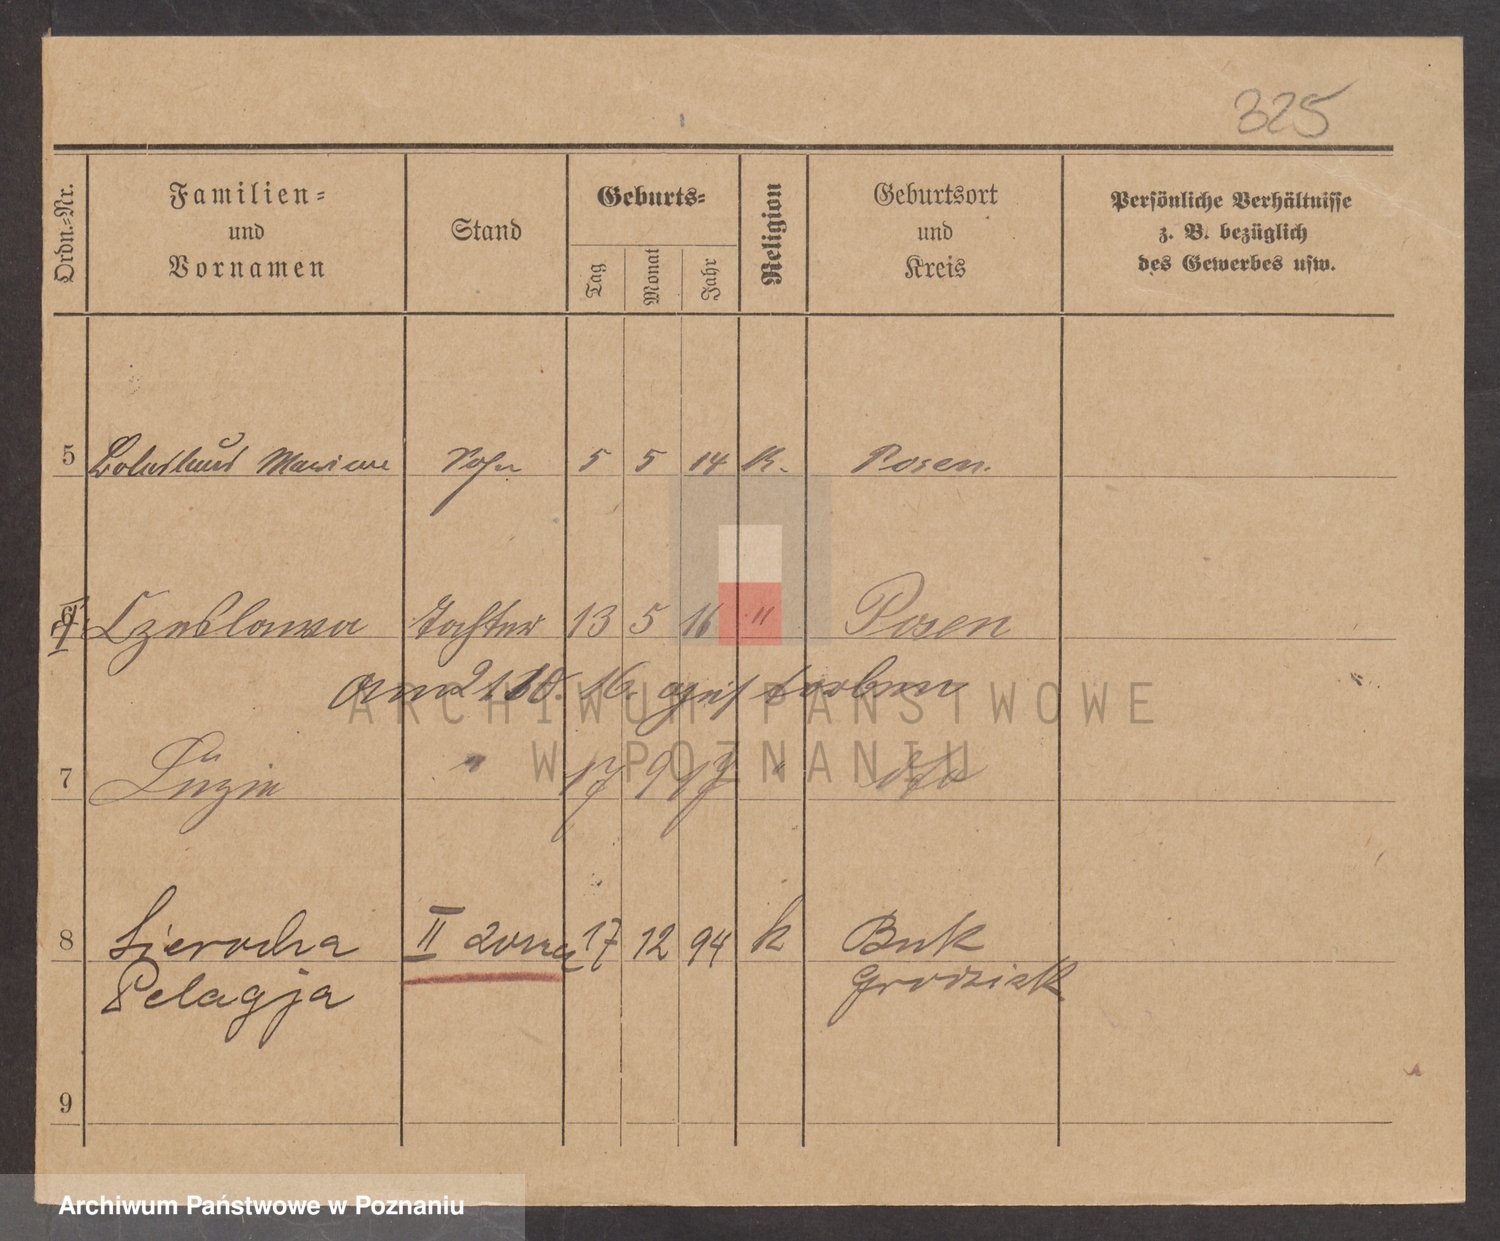 325
Ordn.=Nr.
Familien=
und
Vornamen
Stand
Geburts=
Tag
Monat
Jahr
Religion
Geburtsort
und
Kreis
Persönliche Verhältnisse
z. B. bezüglich
des Gewerbes usw.
5 Boleslaus Sohn 5 5 14 K. Posen.
6 Czeslawa Tochter 13 5 16 " Posen
am 21.10.16. gestorben
7 Luzie " 17 9 17 " dto
8 Sierocka II żona 17 12 94 k Buk
Pelagja Grodzisk
9
ARCHIWUM PAŃSTWOWE
W POZNANIU
Archiwum Państwowe w Poznaniu